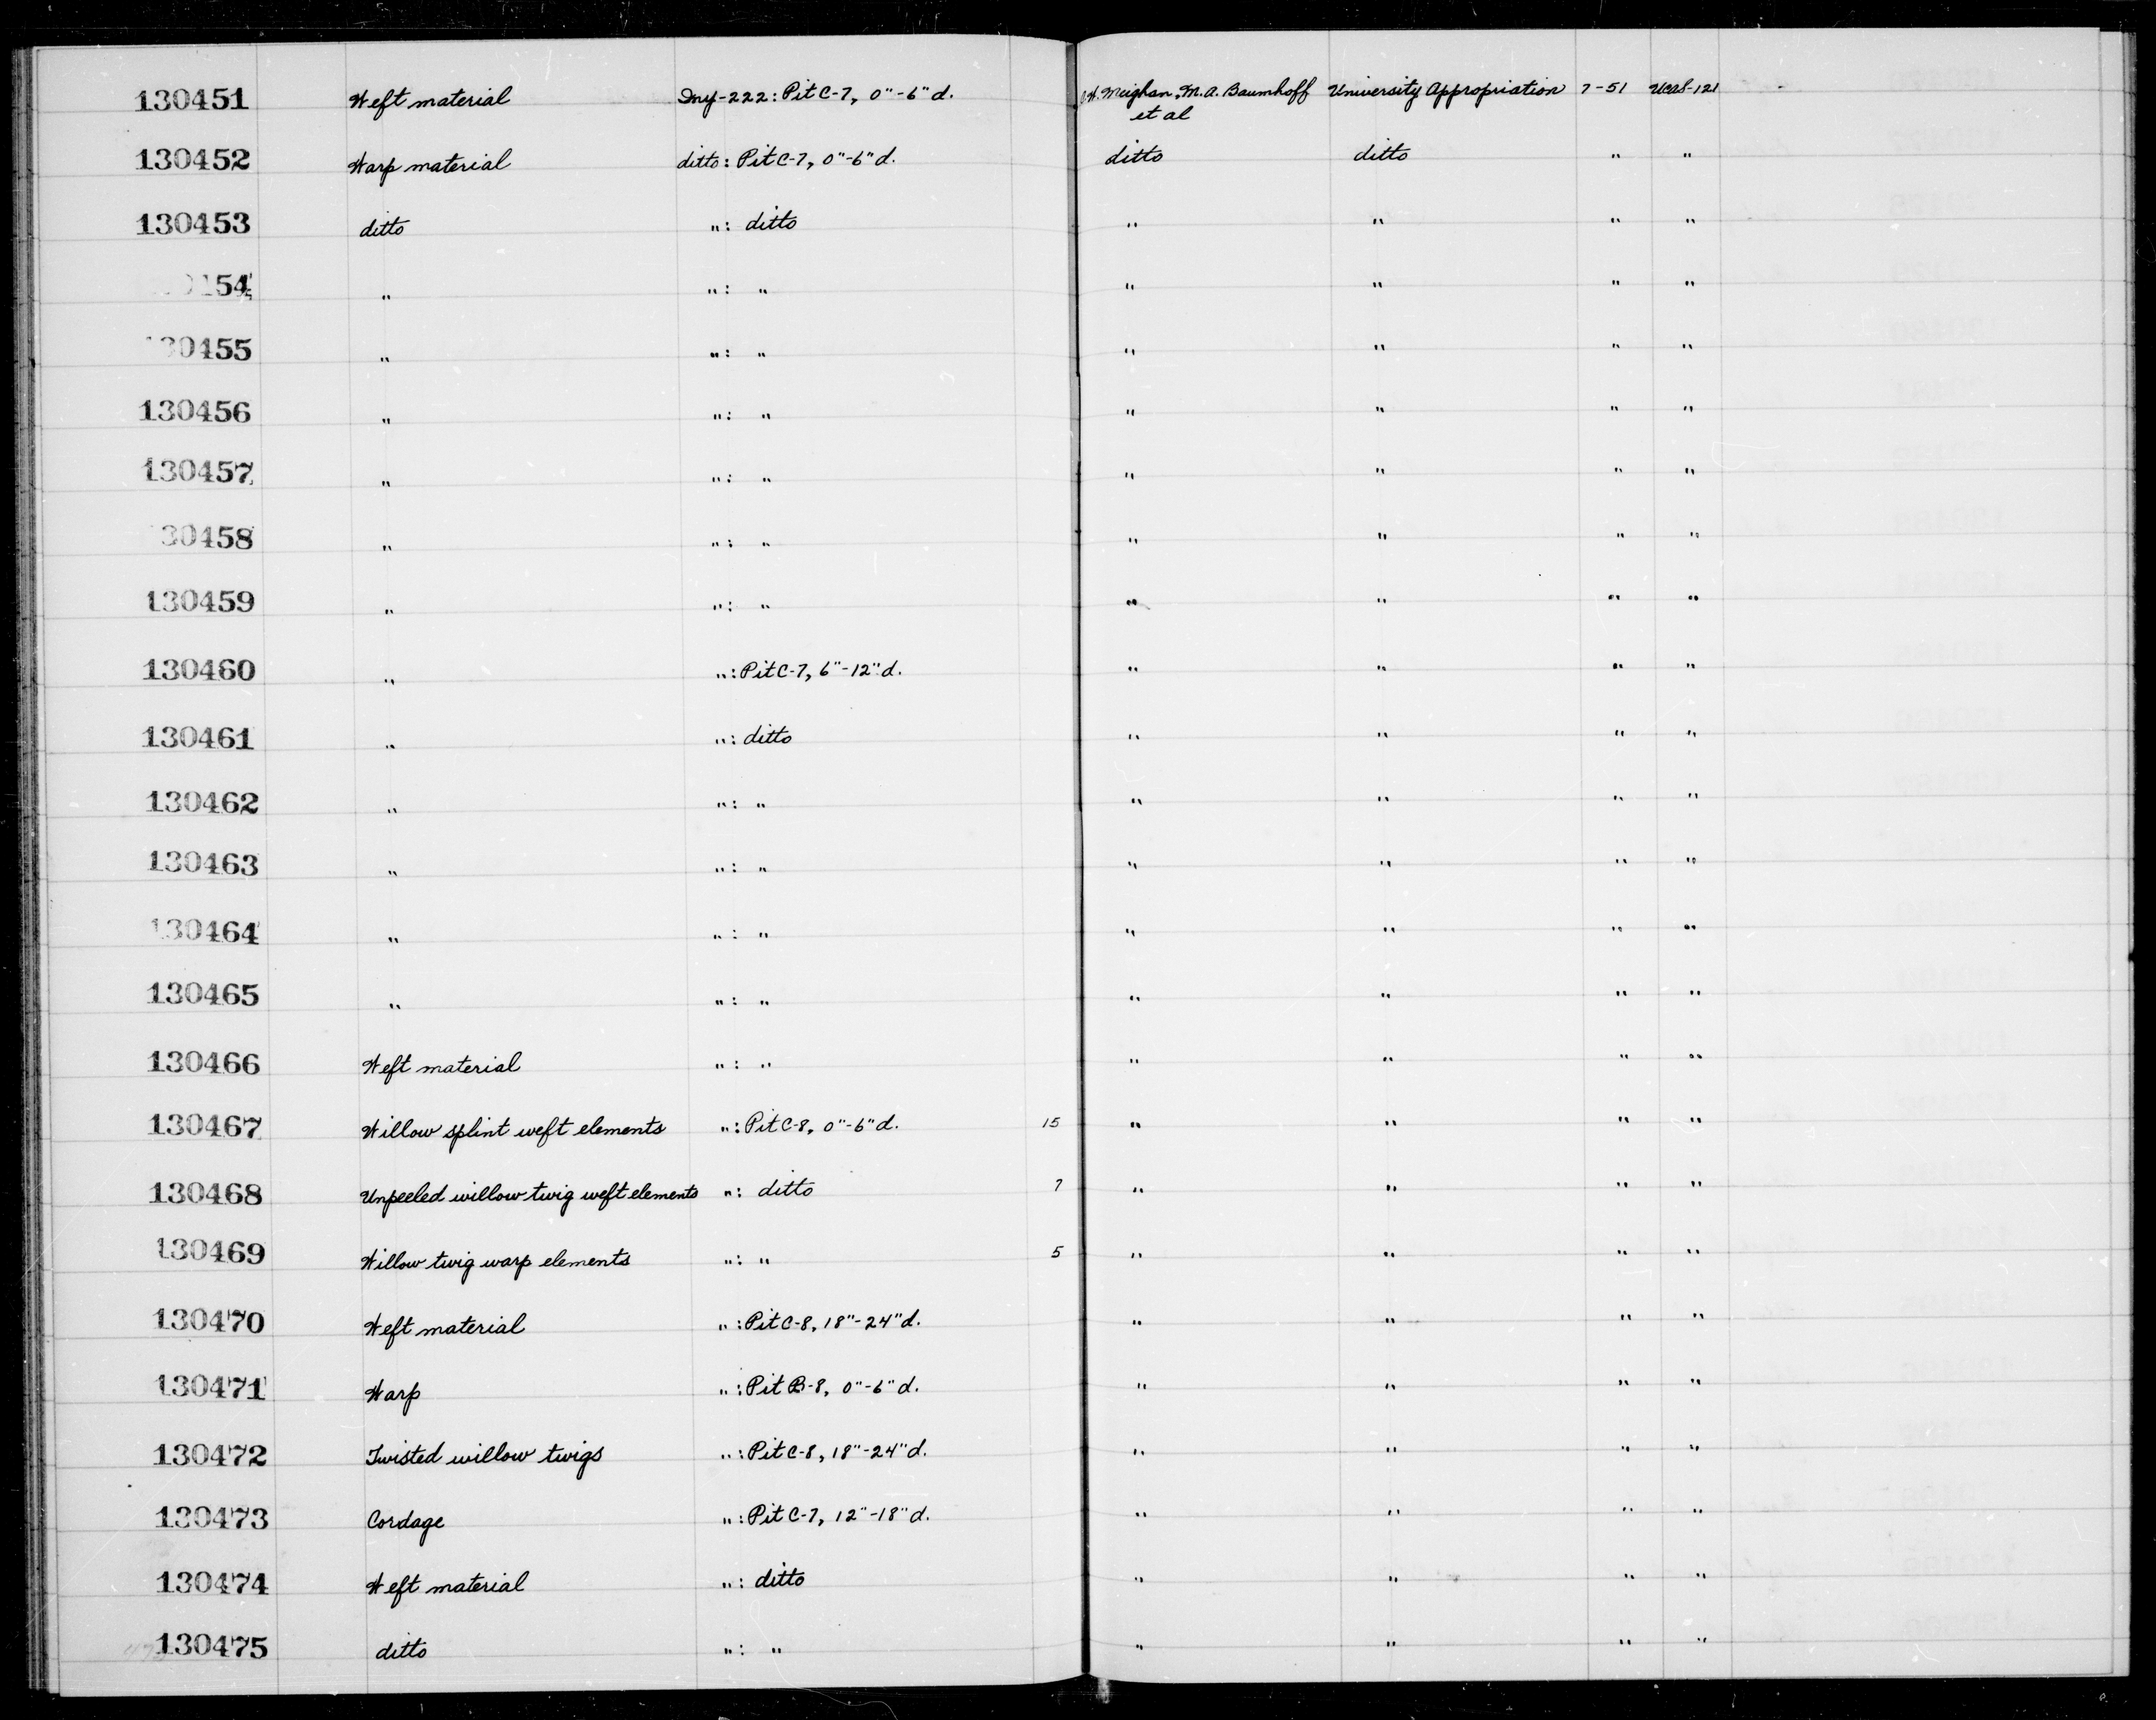 130451 Weft material Iny-222: Pit C-7, 0"-6" d. C.W. Meighan, M.A. Baumhoff University Appropriation 7-51 Ucas-121
et al
130452 Warp material ditto: Pit C-7, 0"-6" d. ditto ditto " "
130453 ditto ": ditto " " " "
154 " ": " " " " "
30455 " ": " " " " "
130456 " ": " " " " "
130457 " ": " " " " "
30458 " ": " " " " "
130459 " ": " " " " "
130460 " ": Pit C-7, 6"-12" d. " " " "
130461 " ": ditto " " " "
130462 " ": " " " " "
130463 " ": " " " " "
130464 " ": " " " " "
130465 " ": " " " " "
130466 Weft material ": " " " " "
130467 Willow splint weft elements ": Pit C-8, 0"-6" d. 15 " " " "
130468 Unpeeled willow twig weft elements ": ditto 7 " " " "
130469 Willow twig warp elements ": " 5 " " " "
130470 Weft material ": Pit C-8, 18"-24" d. " " " "
130471 Warp ": Pit B-8, 0"-6" d. " " " "
130472 Twisted willow twigs ": Pit C-8, 18"-24" d. " " " "
130473 Cordage ": Pit C-7, 12"-18" d. " " " "
130474 Weft material ": ditto " " " "
130475 ditto ": " " " " "